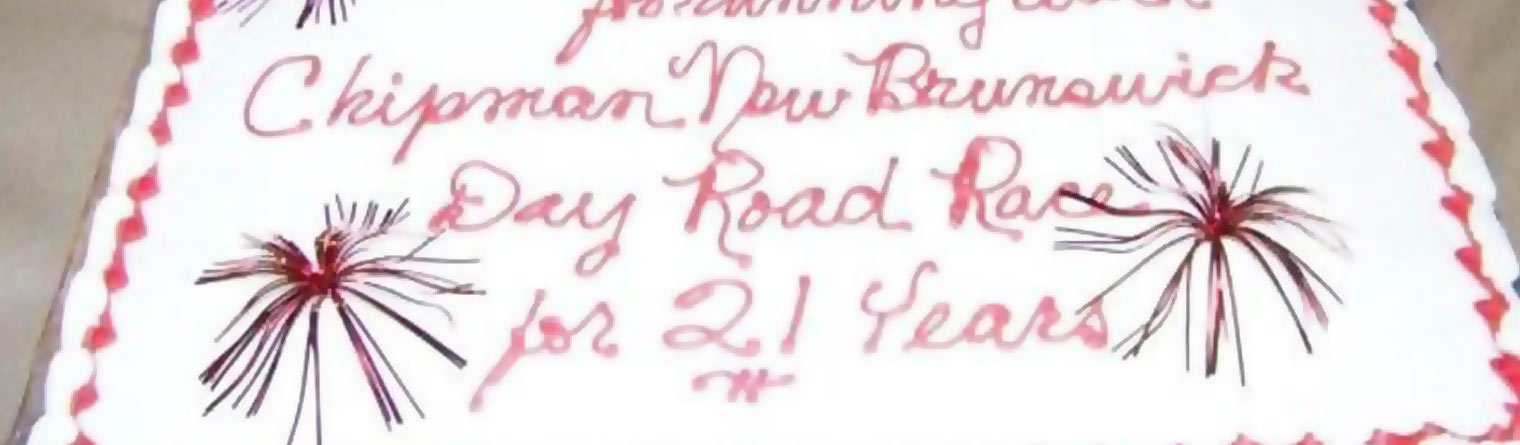 for running
Chipman New Brunswick
Day Road Race
for 21 Years